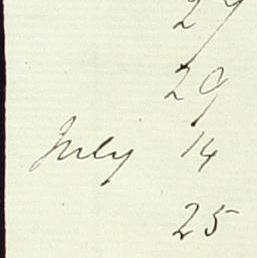 27
29
July 14
25